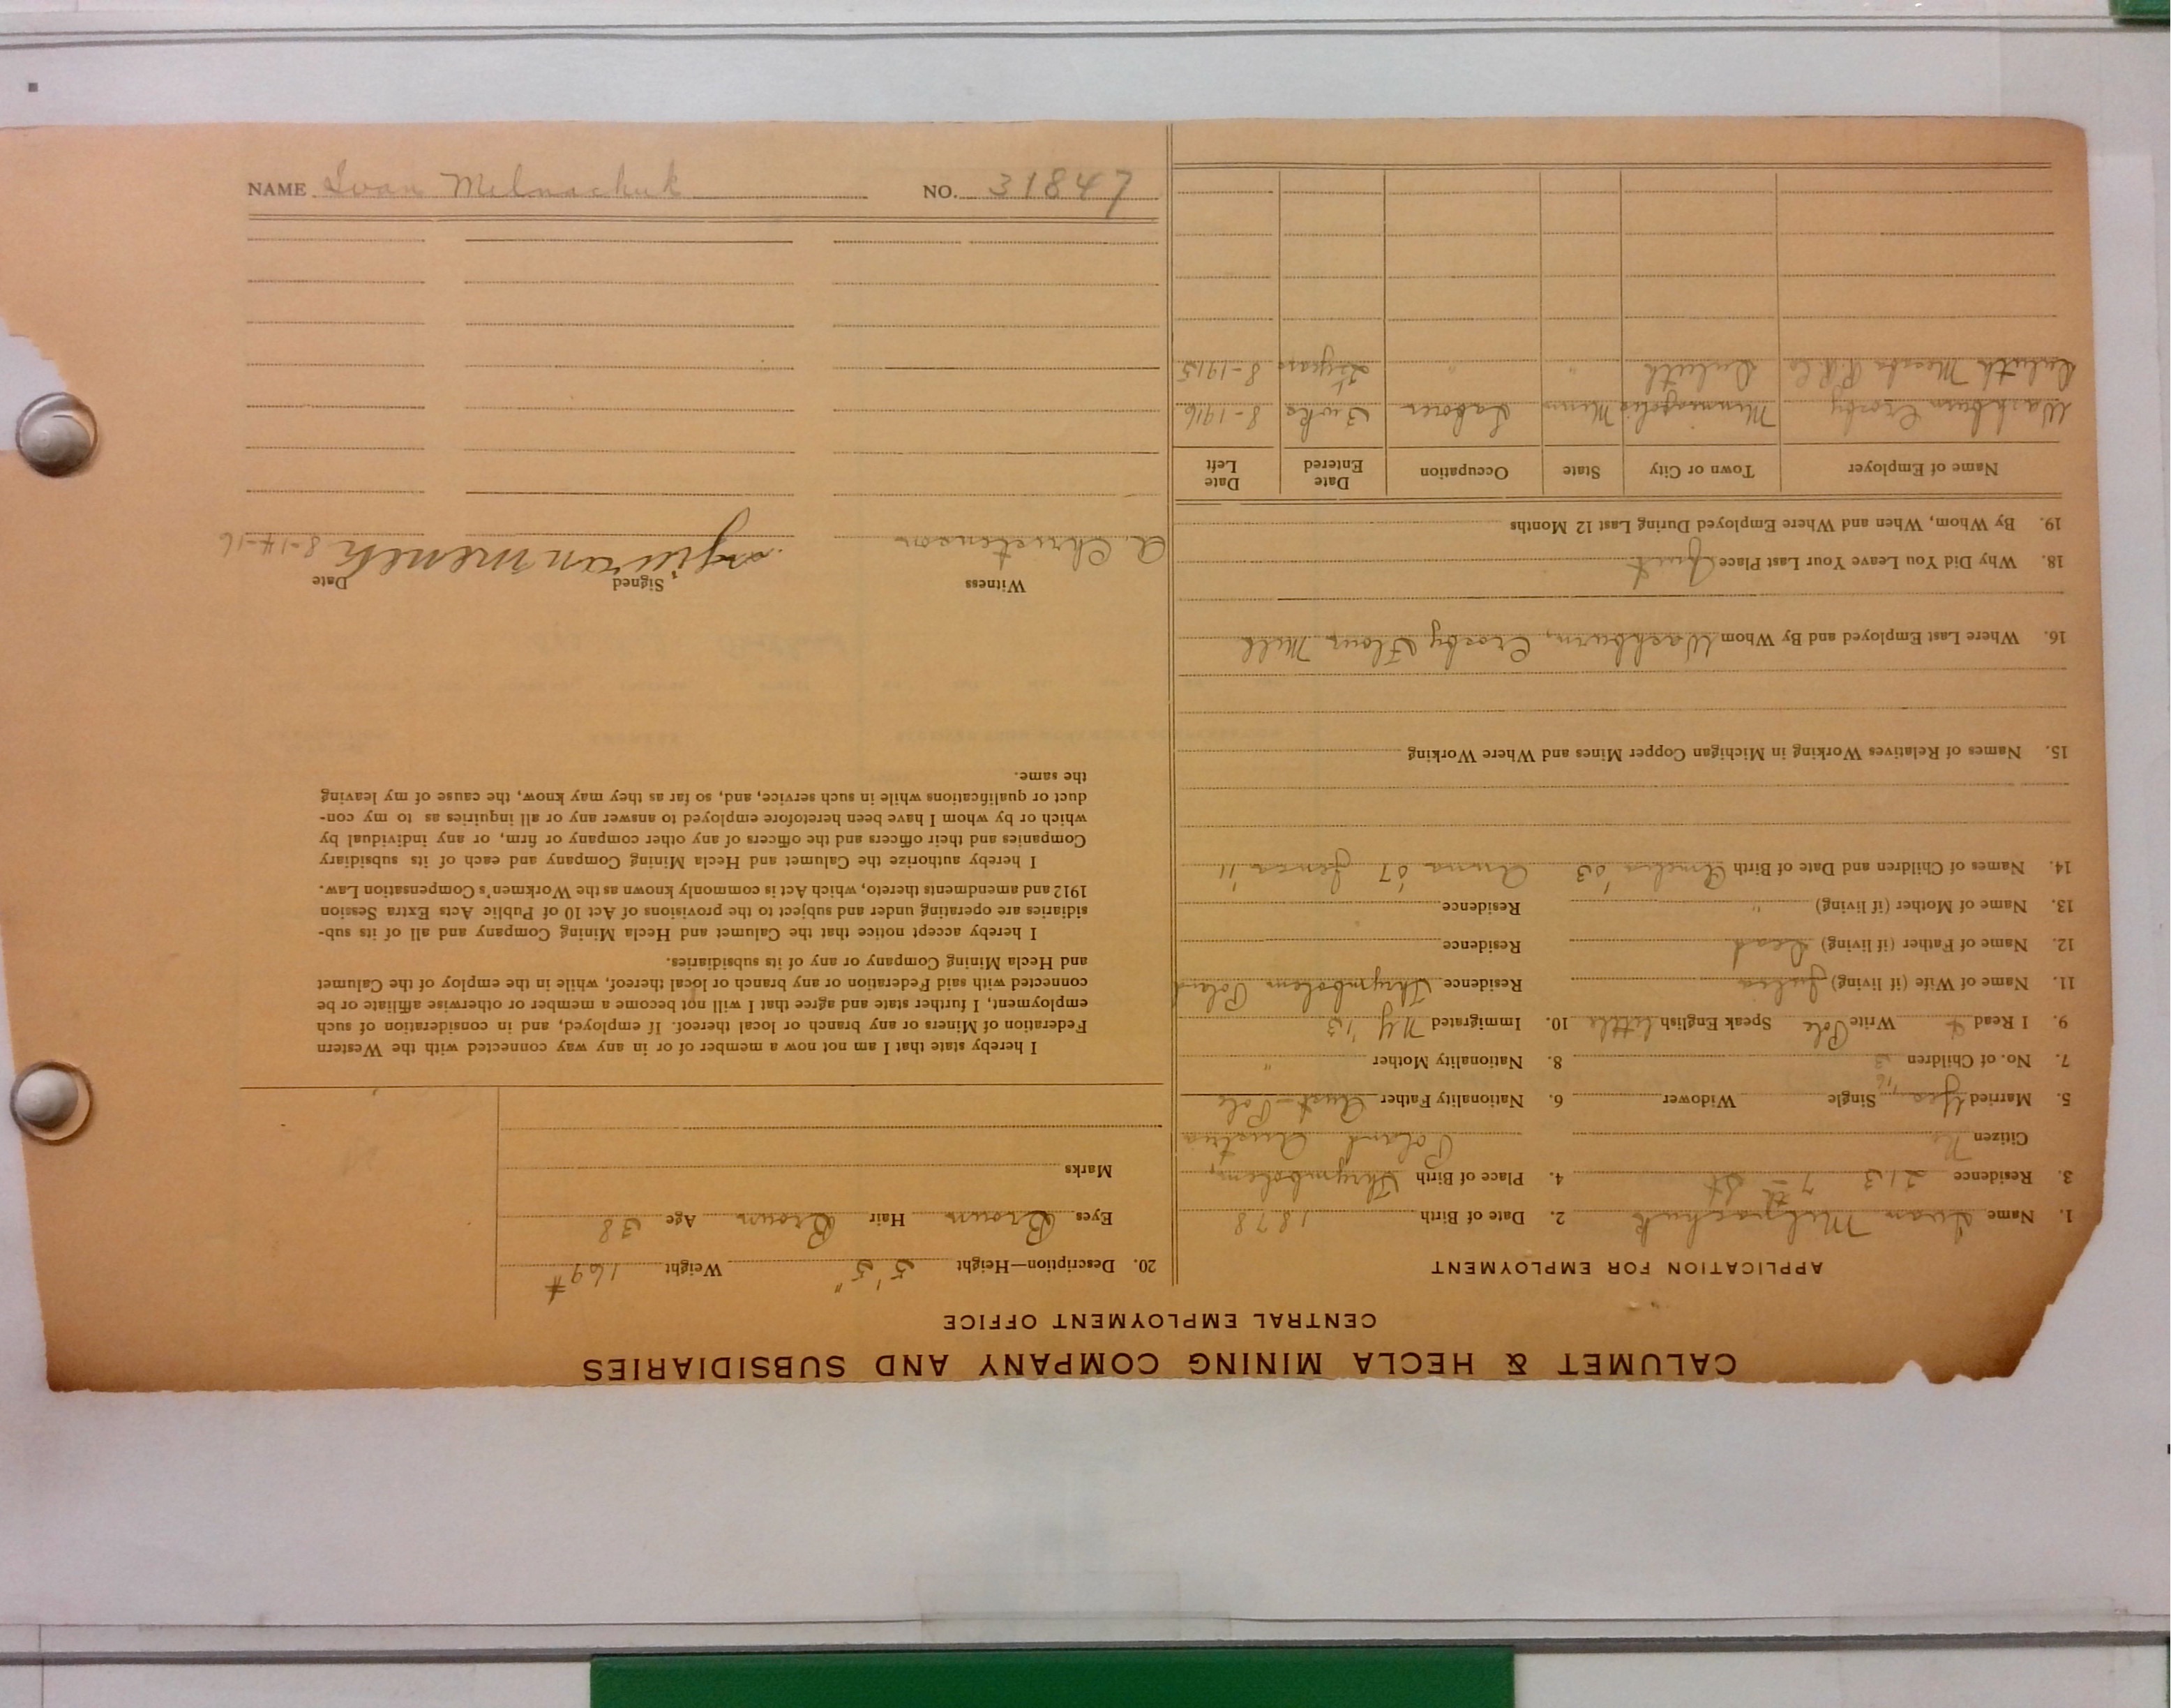 NAME Ivan Melnachuk NO. 31847
CALUMET & HECLA MINING COMPANY AND SUBSIDIARIES
CENTRAL EMPLOYMENT OFFICE
APPLICATION FOR EMPLOYMENT
1. Name Ivan Melnachuk 2. Date of Birth 1878
3. Residence 213 7th St 4. Place of Birth
Citizen No Poland Austria
5. Married Yes '16 Single Widower 6. Nationality Father Aust-Pole
7. No. of Children 3 8. Nationality Mother "
9. I Read & Write Pole Speak English little 10. Immigrated NY '13
11. Name of Wife (if living) Julia Residence Poland
12. Name of Father (if living) Dead Residence
13. Name of Mother (if living) " Residence
14. Names of Children and Date of Birth '03 Anna '07 '11
15. Names of Relatives Working in Michigan Copper Mines and Where Working
16. Where Last Employed and By Whom Washburn, Crosby Flour Mill
18. Why Did You Leave Your Last Place Quit
19. By Whom, When and Where Employed During Last 12 Months
Name of Employer Town or City State Occupation Date Entered Date Left
Washburn Crosby Minneapolis Minn Laborer 3 wks 8-1916
Duluth Mesaba Duluth " " years 8-1915
20. Description—Height 5' 5" Weight 169#
Eyes Brown Hair Brown Age 38
Marks
I hereby state that I am not now a member of or in any way connected with the Western
Federation of Miners or any branch or local thereof. If employed, and in consideration of such
employment, I further state and agree that I will not become a member or otherwise affiliate or be
connected with said Federation or any branch or local thereof, while in the employ of the Calumet
and Hecla Mining Company or any of its subsidiaries.
I hereby accept notice that the Calumet and Hecla Mining Company and all of its sub-
sidiaries are operating under and subject to the provisions of Act 10 of Public Acts Extra Session
1912 and amendments thereto, which Act is commonly known as the Workmen's Compensation Law.
I hereby authorize the Calumet and Hecla Mining Company and each of its subsidiary
Companies and their officers and the officers of any other company or firm, or any individual by
which or by whom I have been heretofore employed to answer any or all inquiries as to my con-
duct or qualifications while in such service, and, so far as they may know, the cause of my leaving
the same.
Witness Signed Date
A. Christenson 8-14-16